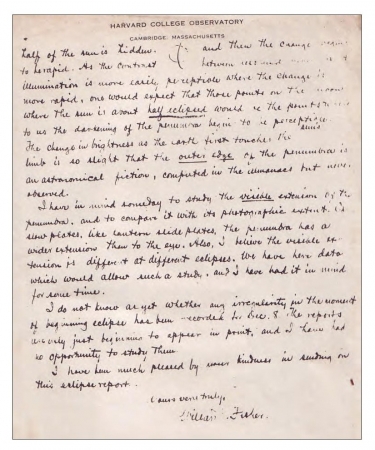 HARVARD COLLEGE OBSERVATORY
CAMBRIDGE, MASSACHUSETTS
half of the sun is hidden. and then the change
to be rapid. As the contrast between
illumination is more easily perceptible where the change is
more rapid, one would expect that those points on the moon
where the sun is about half eclipsed would be the points
to us the darkening of the penumbra begin to be perceptible.
The change in brightness as the earth first touches the sun's
limb is so slight that the outer edge of the penumbra is
an astronomical fiction, computed in the almanacs but never
observed.
I have in mind someday to study the visible extension of the
penumbra, and to compare it with its photographic extent.
slow plates, like lantern slide plates, the penumbra has a
wider extension than to the eye. Also, I believe the visible ex-
tension is different at different eclipses. We have here data
which would allow such a study, and I have had it in mind
for some time.
I do not know as yet whether any irregularity in the moment
of beginning eclipse has been recorded for Dec. 8. The reports
are only just beginning to appear in print, and I have had
no opportunity to study them.
I have been much pleased by your kindness in sending on
this eclipse report.
Yours very truly,
Fisher.